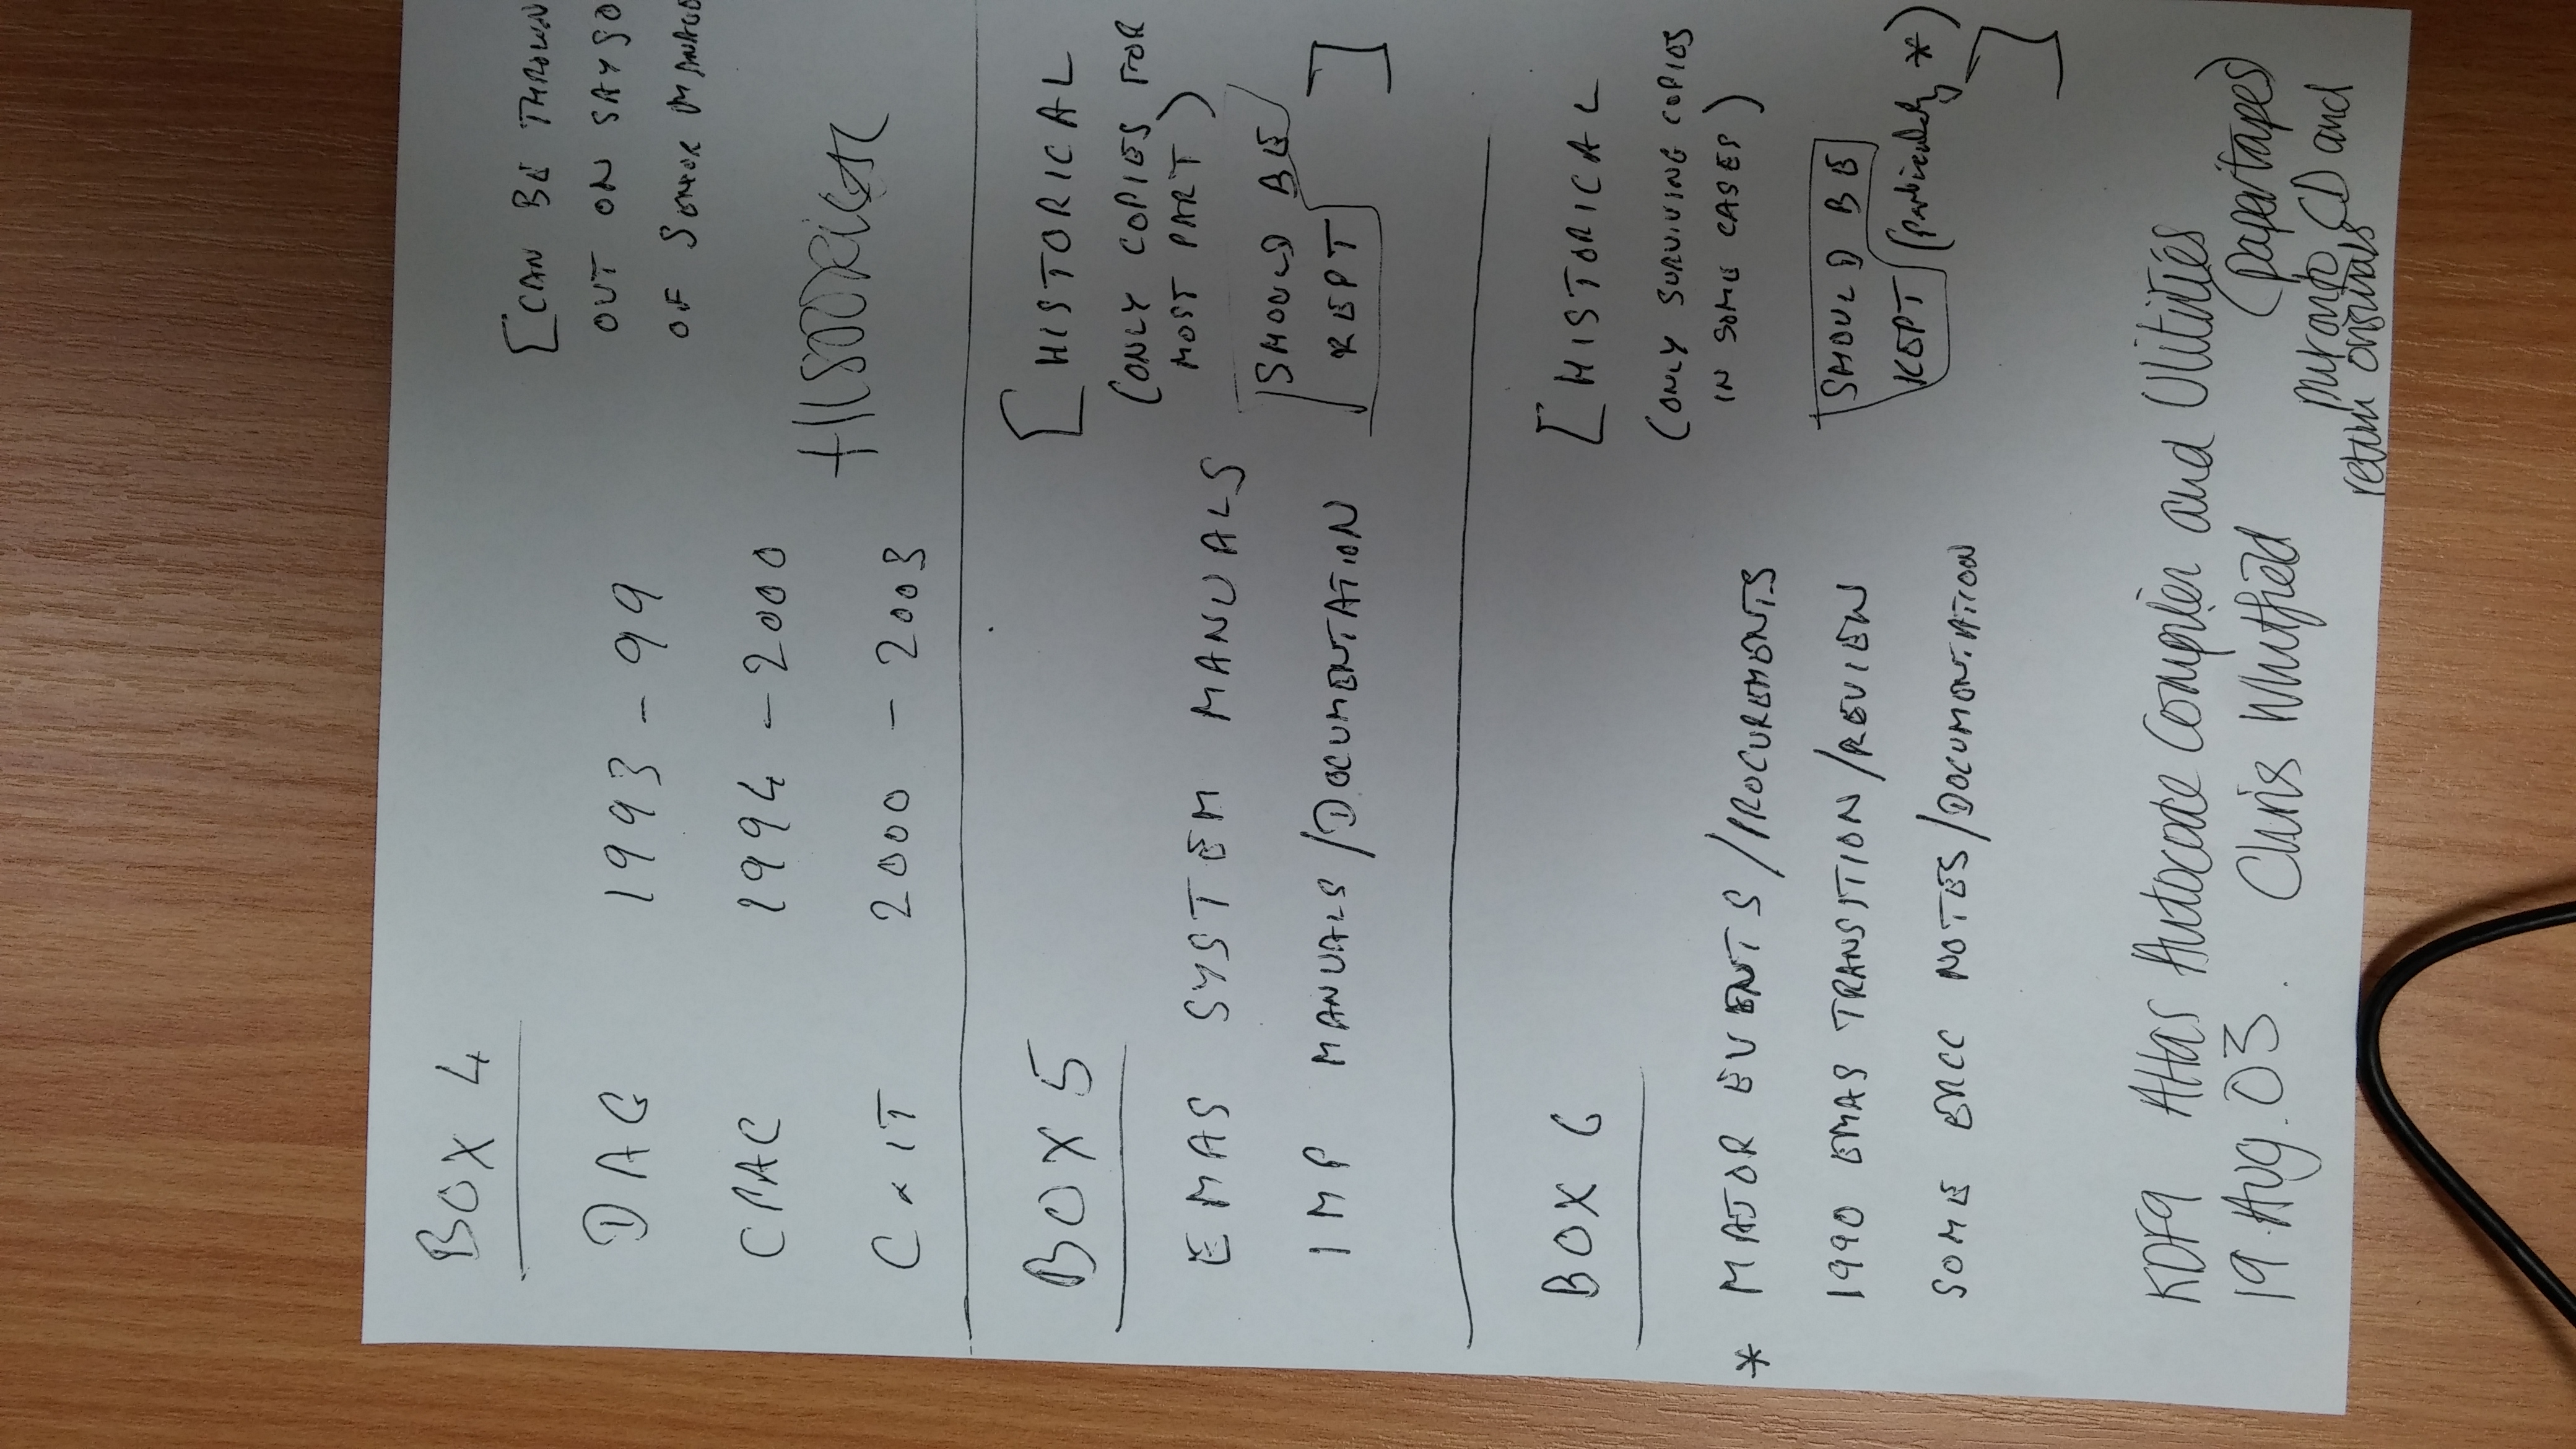 BOX 4
[CAN BE THROWN
OUT ON SAYSO
OF SENIOR
DAG 1993 - 99
CPAC 1994 - 2000
C & IT 2000 - 2003
BOX 5
[HISTORICAL
(ONLY COPIES FOR
MOST PART)
EMAS SYSTEM MANUALS
SHOULD BE
IMP MANUALS/DOCUMENTATION
KEPT ]
BOX 6
[HISTORICAL
(ONLY SURVIVING COPIES
IN SOME CASES)
* MAJOR EVENTS/PROCUREMENTS
SHOULD BE
1990 EMAS TRANSITION/REVIEW
KEPT (particularly *)
SOME ERCC NOTES/DOCUMENTATION
]
KDF9 Atlas Autocode Compiler and Utilities
(papertapes)
19 Aug. 03. Chris Whitfield
put onto CD and
return originals